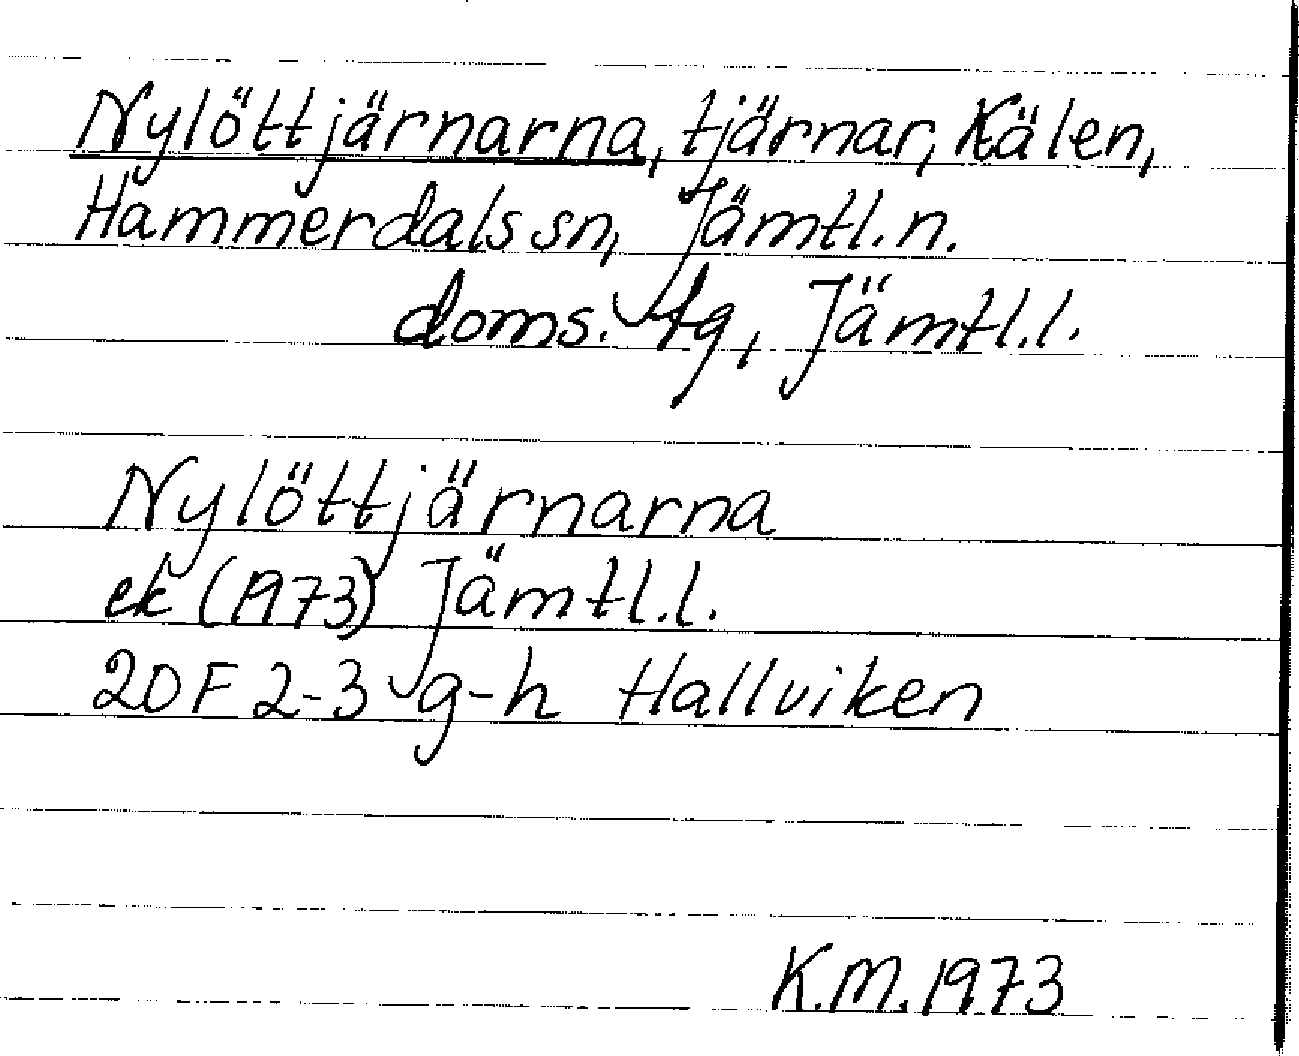 Nylöttjärnarna, tjärnar, Kälen,
Hammerdals sn, Jämtl. n.
doms. tg, Jämtl. l.
Nylöttjärnarna
ek (1973) Jämtl. l.
20F 2-3 g-h Hallviken
K.M. 1973